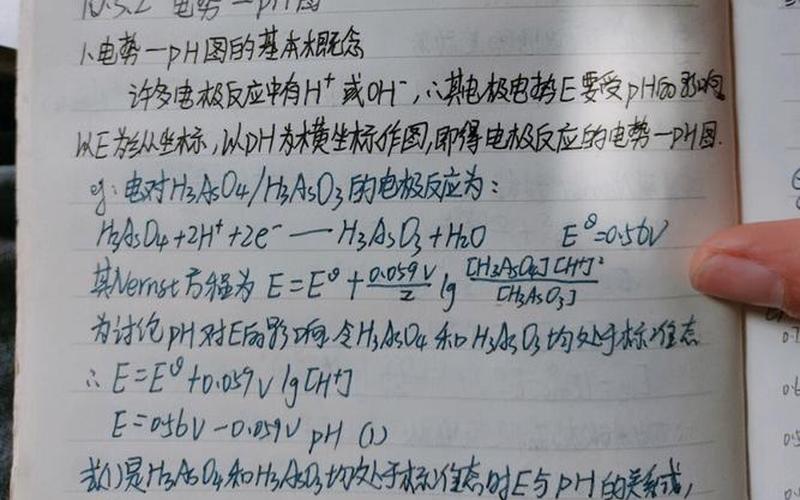 10.5.2 电势一pH图
1、电势一pH图的基本概念
许多电极反应中有H⁺或OH⁻,∴其电极电势E要受pH的影响
以E为纵坐标,以pH为横坐标作图,即得电极反应的电势一pH图.
eg:电对H₃AsO₄/H₃AsO₃的电极反应为:
H₃AsO₄+2H⁺+2e⁻ — H₃AsO₃+H₂O E^θ=0.56V
其Nernst方程为 E=E^θ+0.059V/2 lg [H₃AsO₄][H⁺]²/[H₃AsO₃]
为讨论pH对E的影响,令H₃AsO₄和H₃AsO₃均处于标准态
∴ E=E^θ+0.059V lg[H⁺]
E=0.56V-0.059V pH (1)
式(1)是H₃AsO₄和H₃AsO₃均处于标准态时E与pH的关系式,